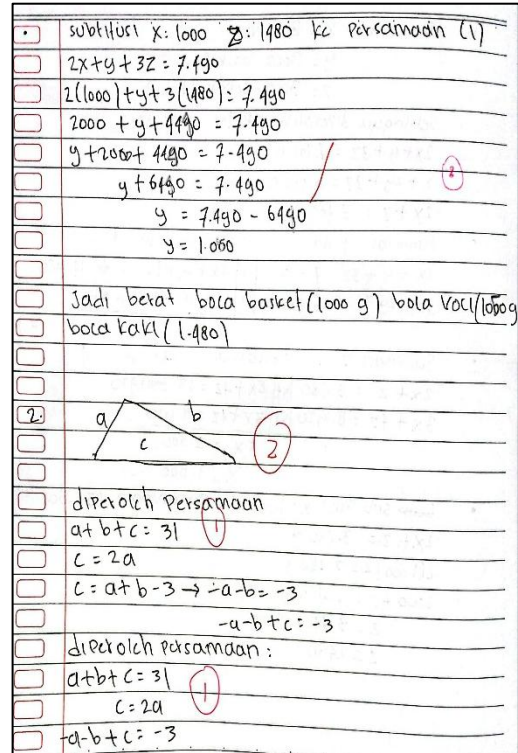 • subtitusi x: 1000 z: 1480 ke persamaan (1)
2x+y+3z = 7.490
2(1000)+y+3(1480) = 7.490
2000 + y+4490 = 7.490
y+2000+ 4490 = 7.490
y+6490 = 7.490
2
y = 7.490 - 6490
y = 1.000
Jadi berat bola basket (1000 g) bola voli (1000g
bola kaki (1.480)
2. a b
c
2
diperoleh persamaan
a+b+c = 31 1
c = 2a
c = a+b-3 → -a-b = -3
-a-b+c = -3
diperoleh persamaan :
a+b+c = 31
c = 2a 1
-a-b+c = -3